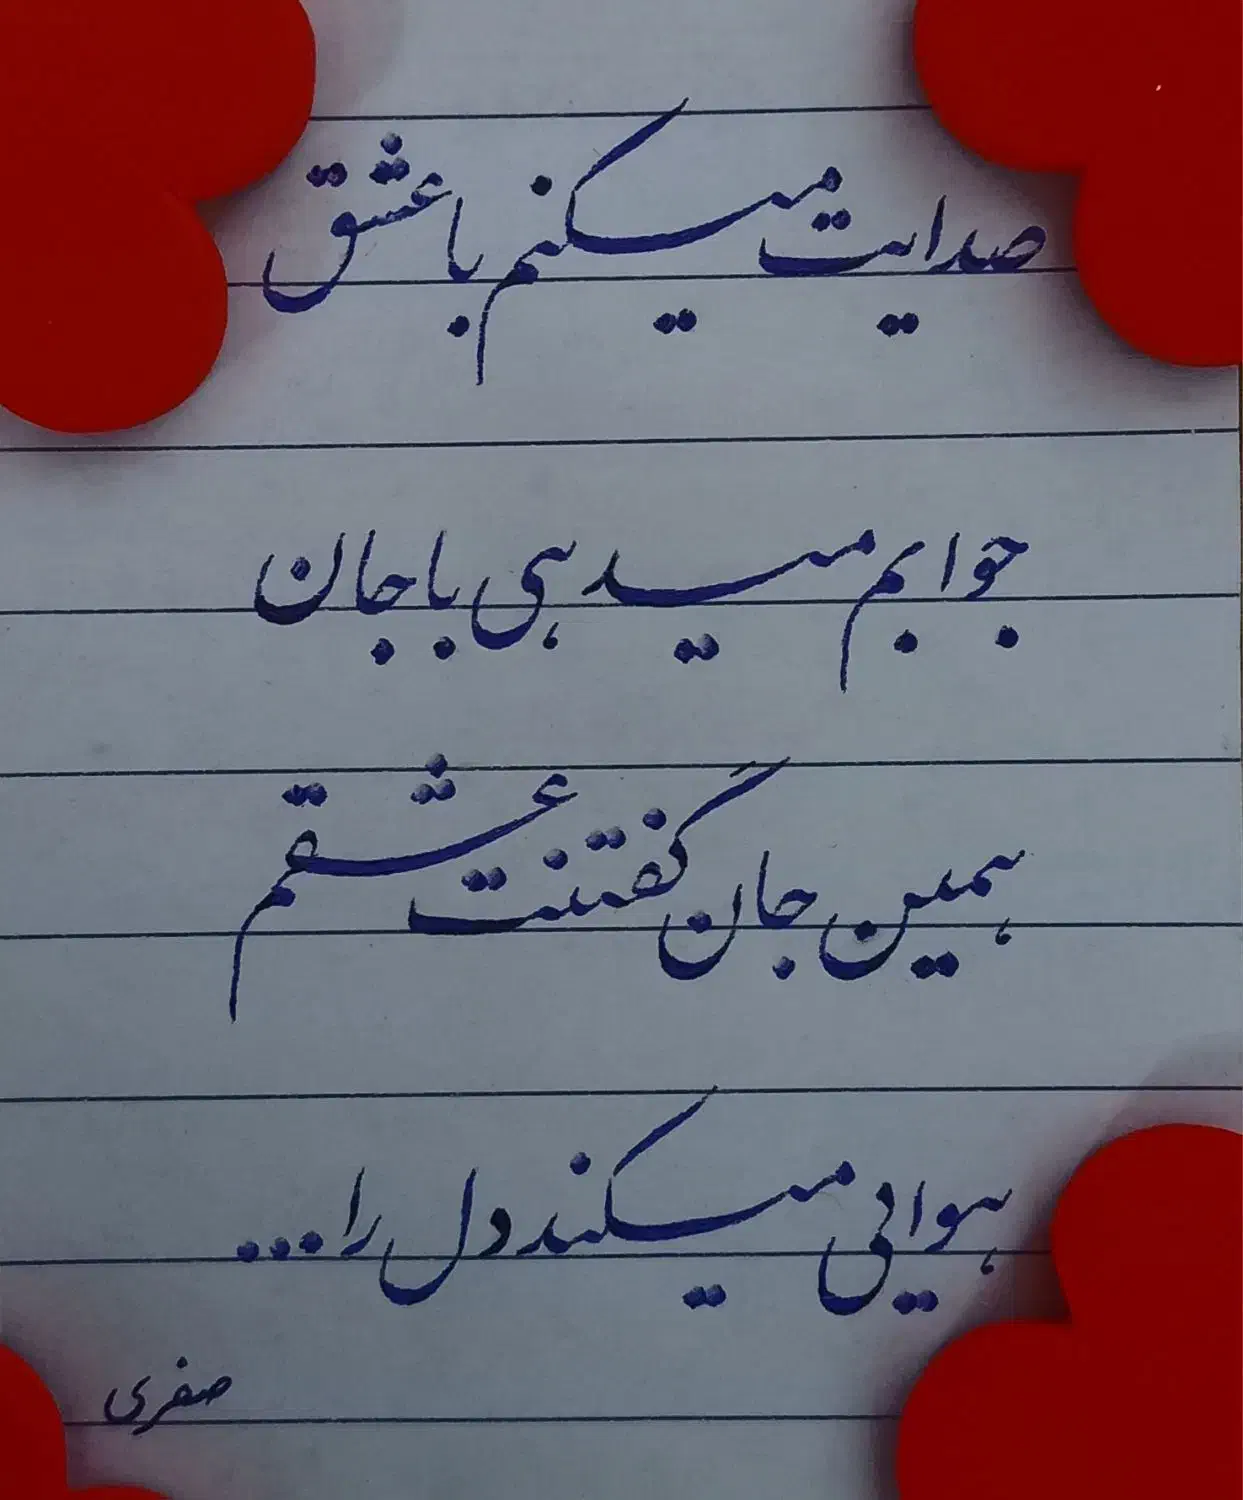 صدایت میکنم با عشق
جوابم میدهی با جان
همین جان گفتنت عشقم
هوایی میکند دل را...
صفری